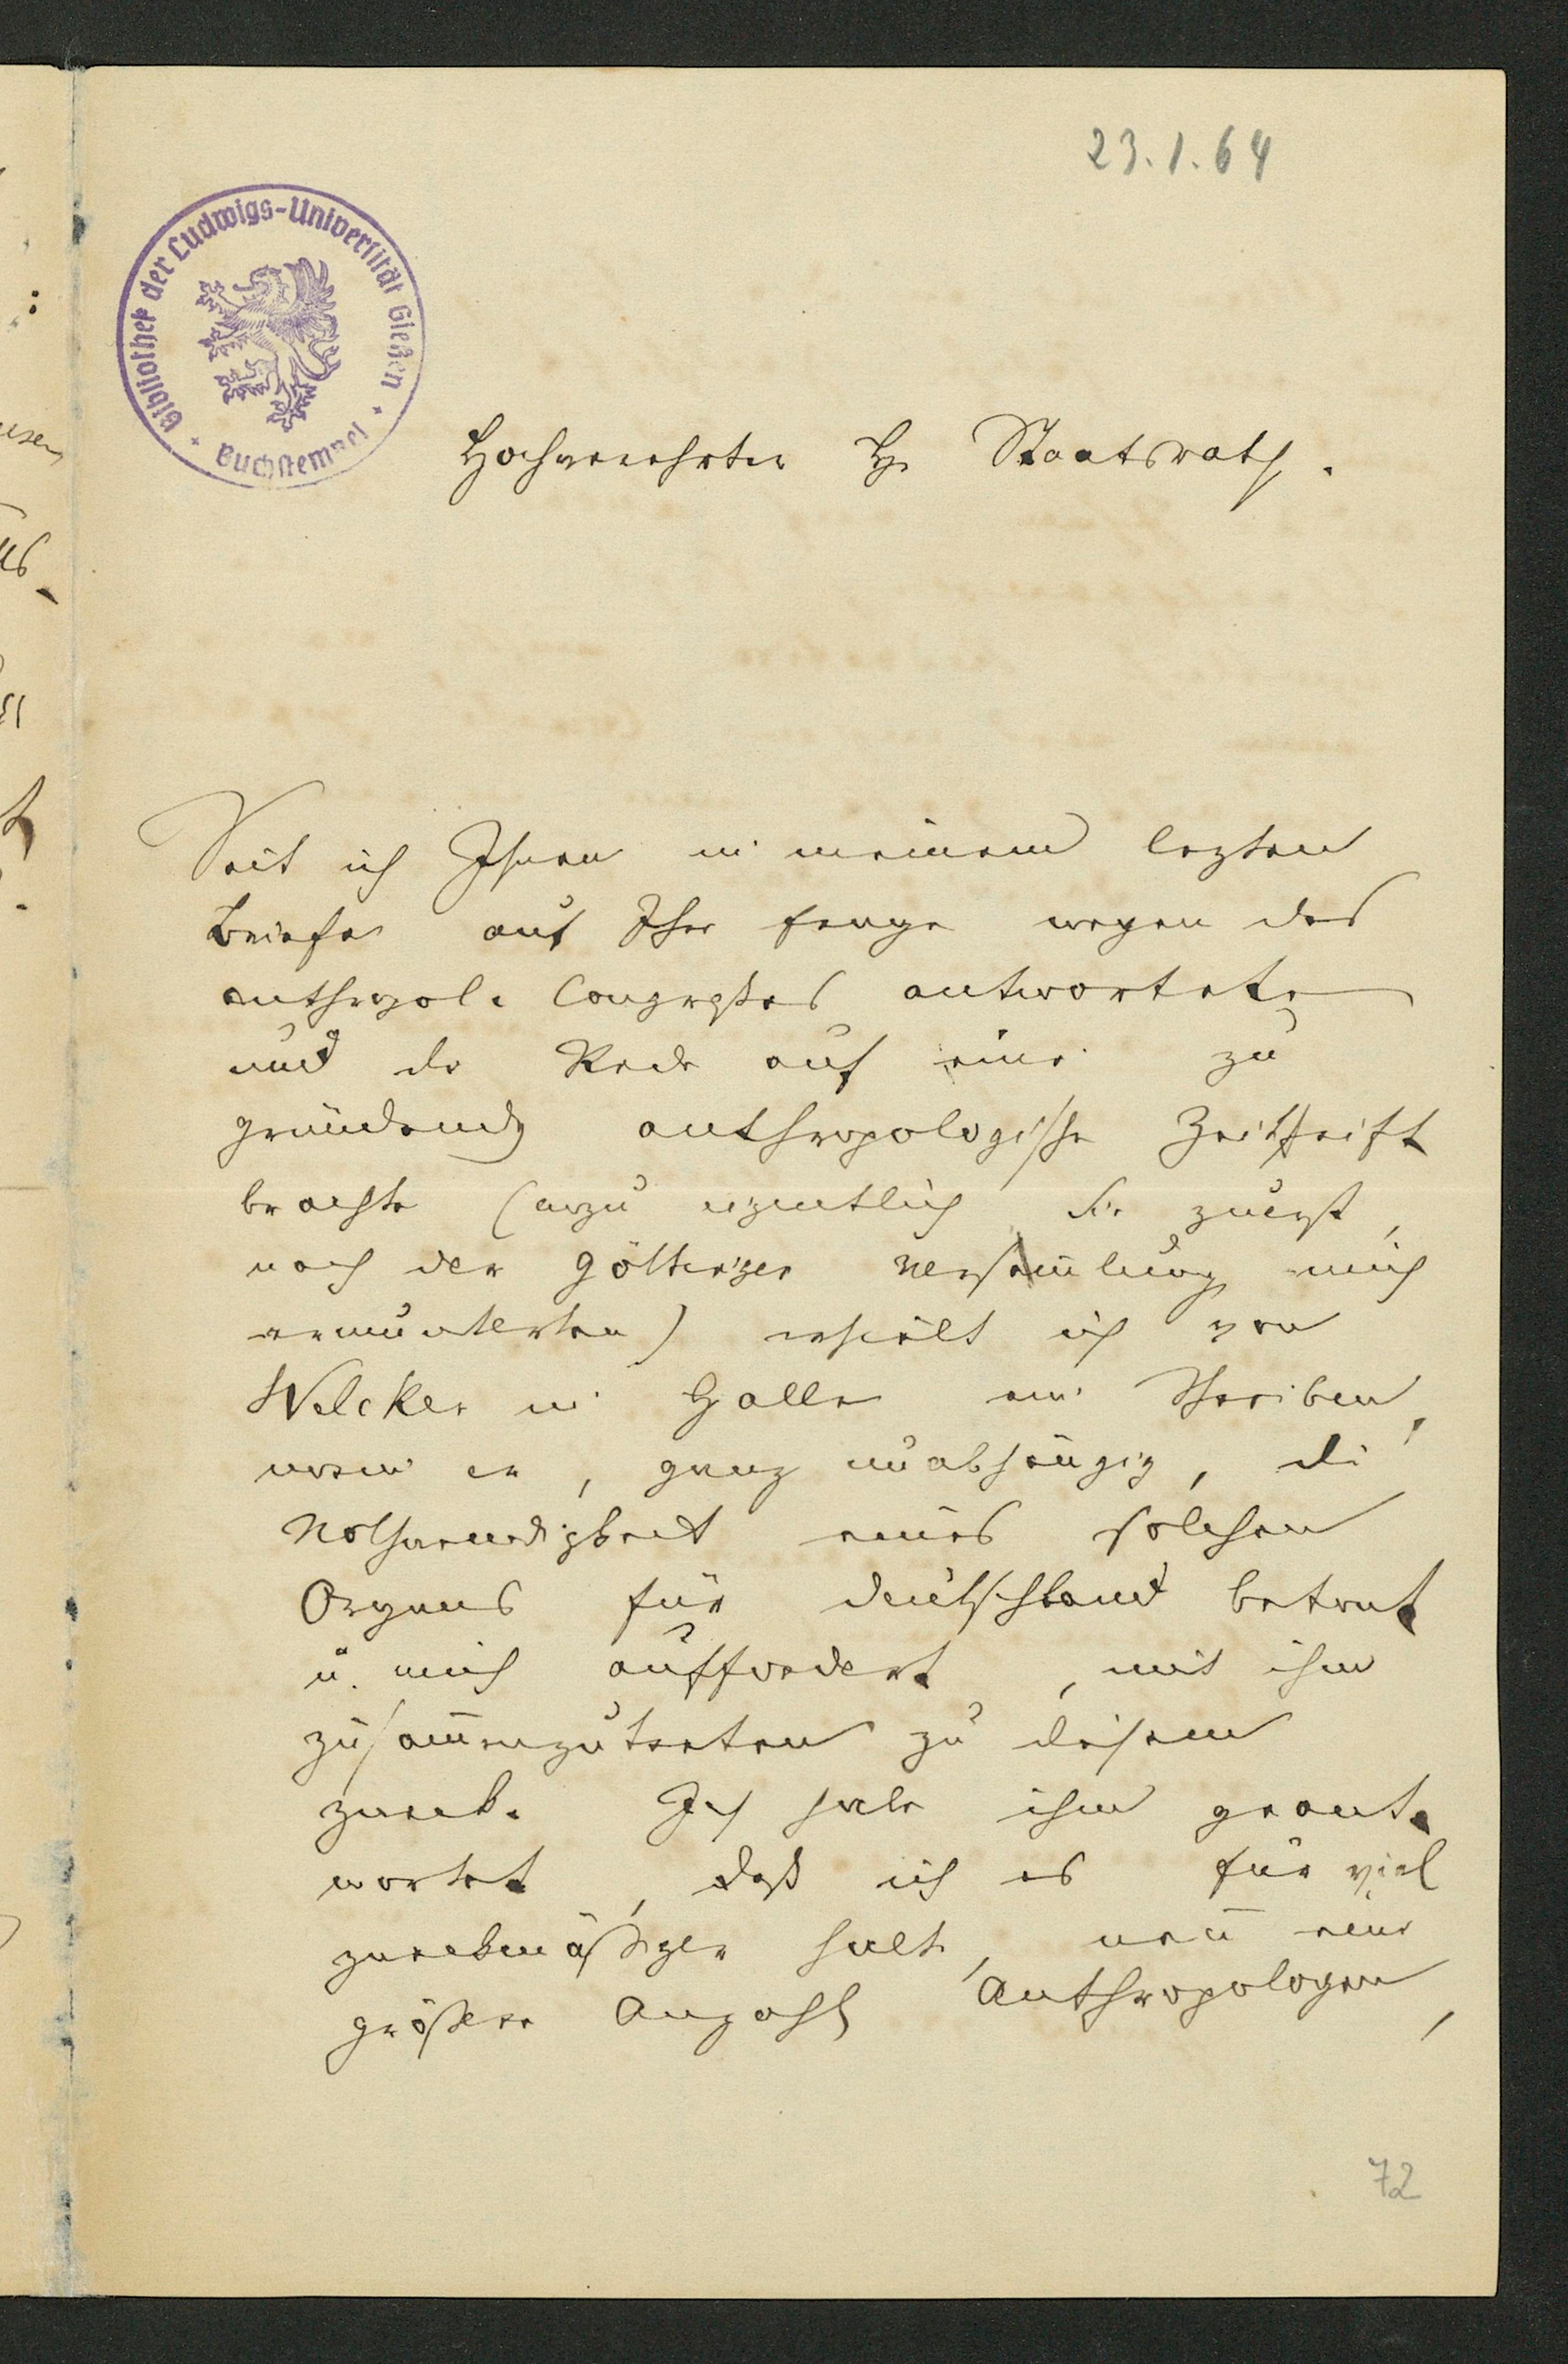 23.1.64
Bibliothek der Ludwigs-Universität Gießen
Buchstempel
Hochverehrter H. Staatsrath.
Seit ich Ihnen in meinem lezten
Briefe auf Ihre Frage wegen des
anthropol. Congreßes antwortete
und die Rede auf eine zu
gründende anthropologische Zeitschrift
brachte (wozu eigentlich Sie zuerst,
nach der Göttinger Versam̅lung mich
ermunterten) erhielt ich von
Welcker in Halle ein Schreiben,
worin er, ganz unabhängig, die
Nothwendigkeit eines solchen
Organs für Deutschland betont
u. mich auffordert, mit ihm
zusam̅enzutreten zu diesem
Zweck. Ich habe ihm geant-
wortet, daß ich es für viel
zweckmäßiger halte, wen̅ eine
größere Anzahl Anthropologen,
72